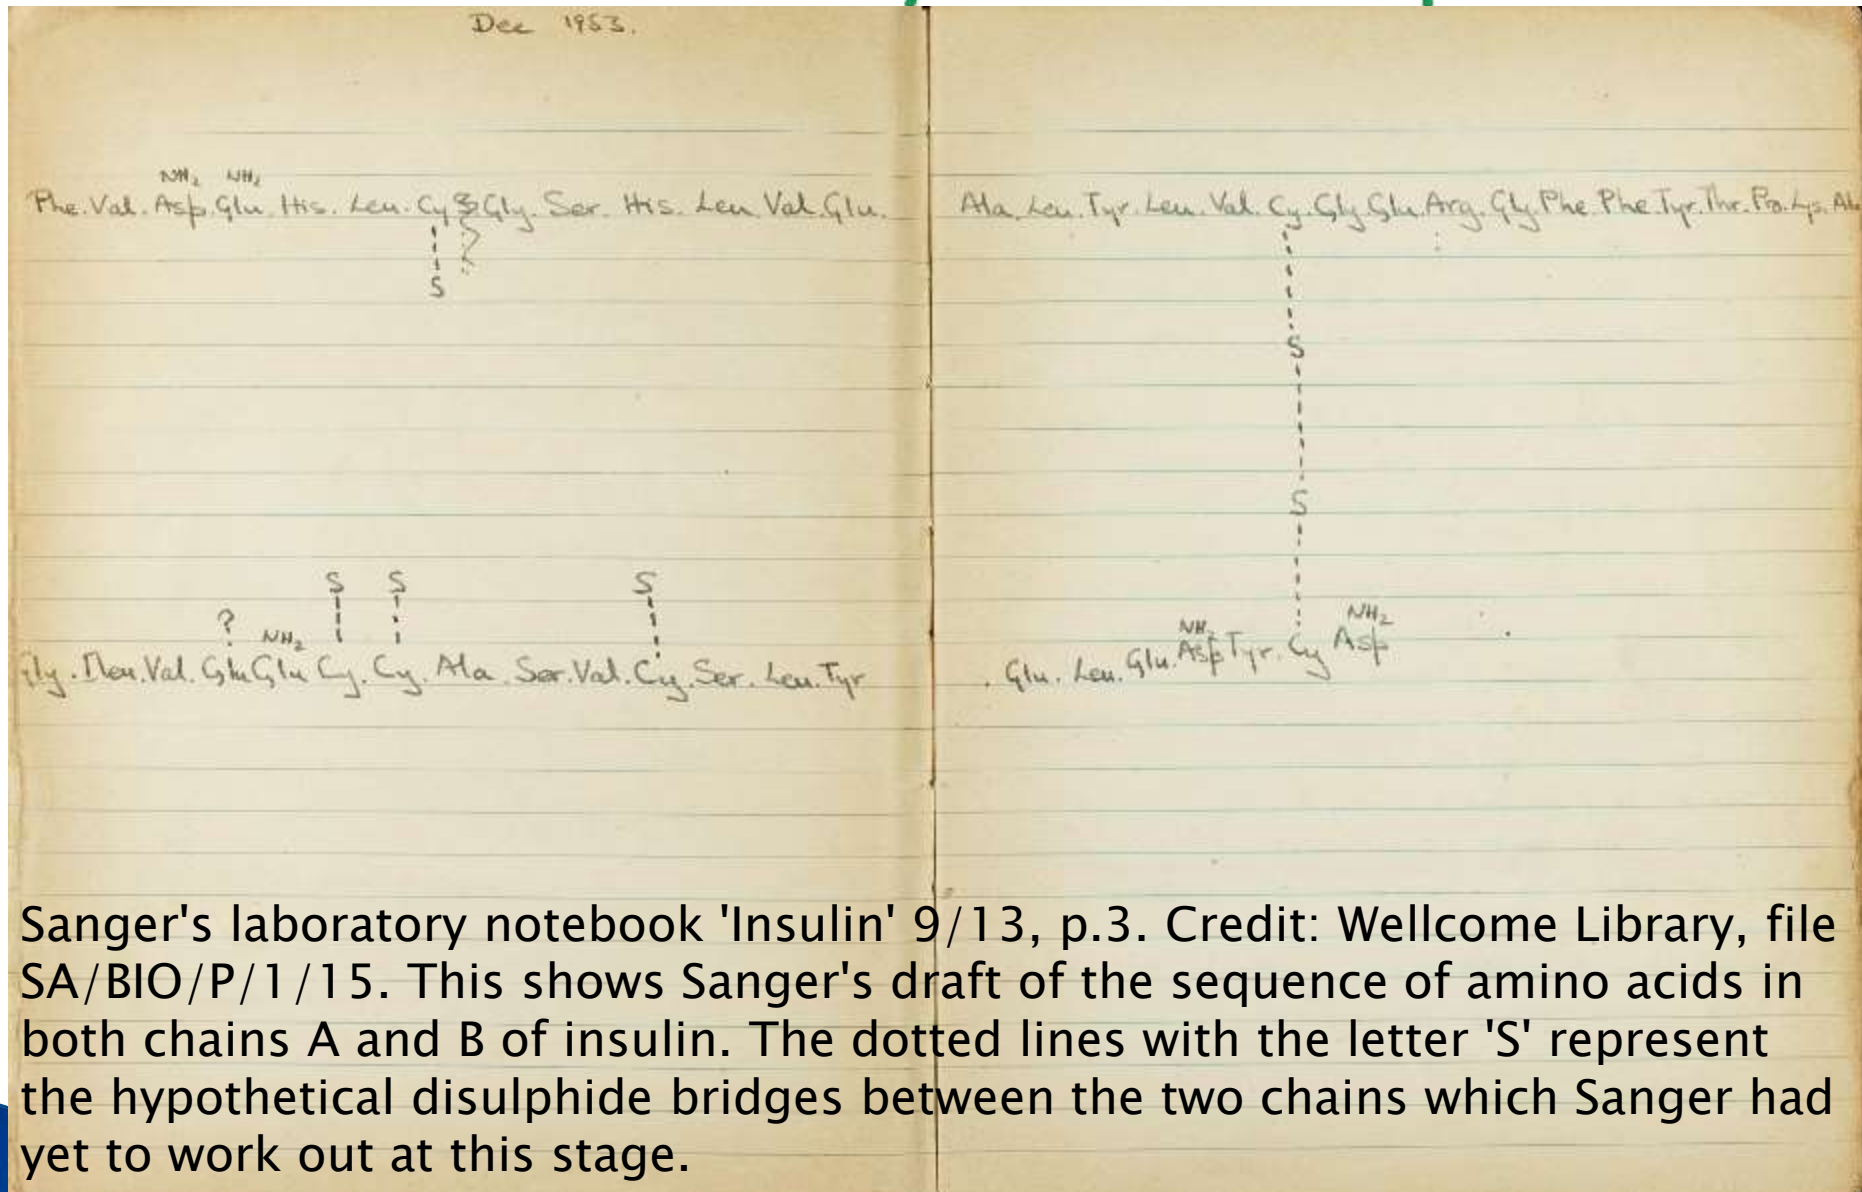 Dec 1953.
NH₂ NH₂
Phe. Val. Asp. Glu. His. Leu. Cy Gly. Ser. His. Leu. Val. Glu. Ala. Leu. Tyr. Leu. Val. Cy. Gly. Glu. Arg. Gly. Phe. Phe. Tyr. Thr. Pro. Lys. Ala
S
S
S
S S S
? NH₂ NH₂ NH₂
Gly. Ileu. Val. Glu Glu Cy. Cy. Ala. Ser. Val. Cy. Ser. Leu. Tyr . Glu. Leu. Glu. Asp Tyr. Cy Asp
Sanger's laboratory notebook 'Insulin' 9/13, p.3. Credit: Wellcome Library, file
SA/BIO/P/1/15. This shows Sanger's draft of the sequence of amino acids in
both chains A and B of insulin. The dotted lines with the letter 'S' represent
the hypothetical disulphide bridges between the two chains which Sanger had
yet to work out at this stage.